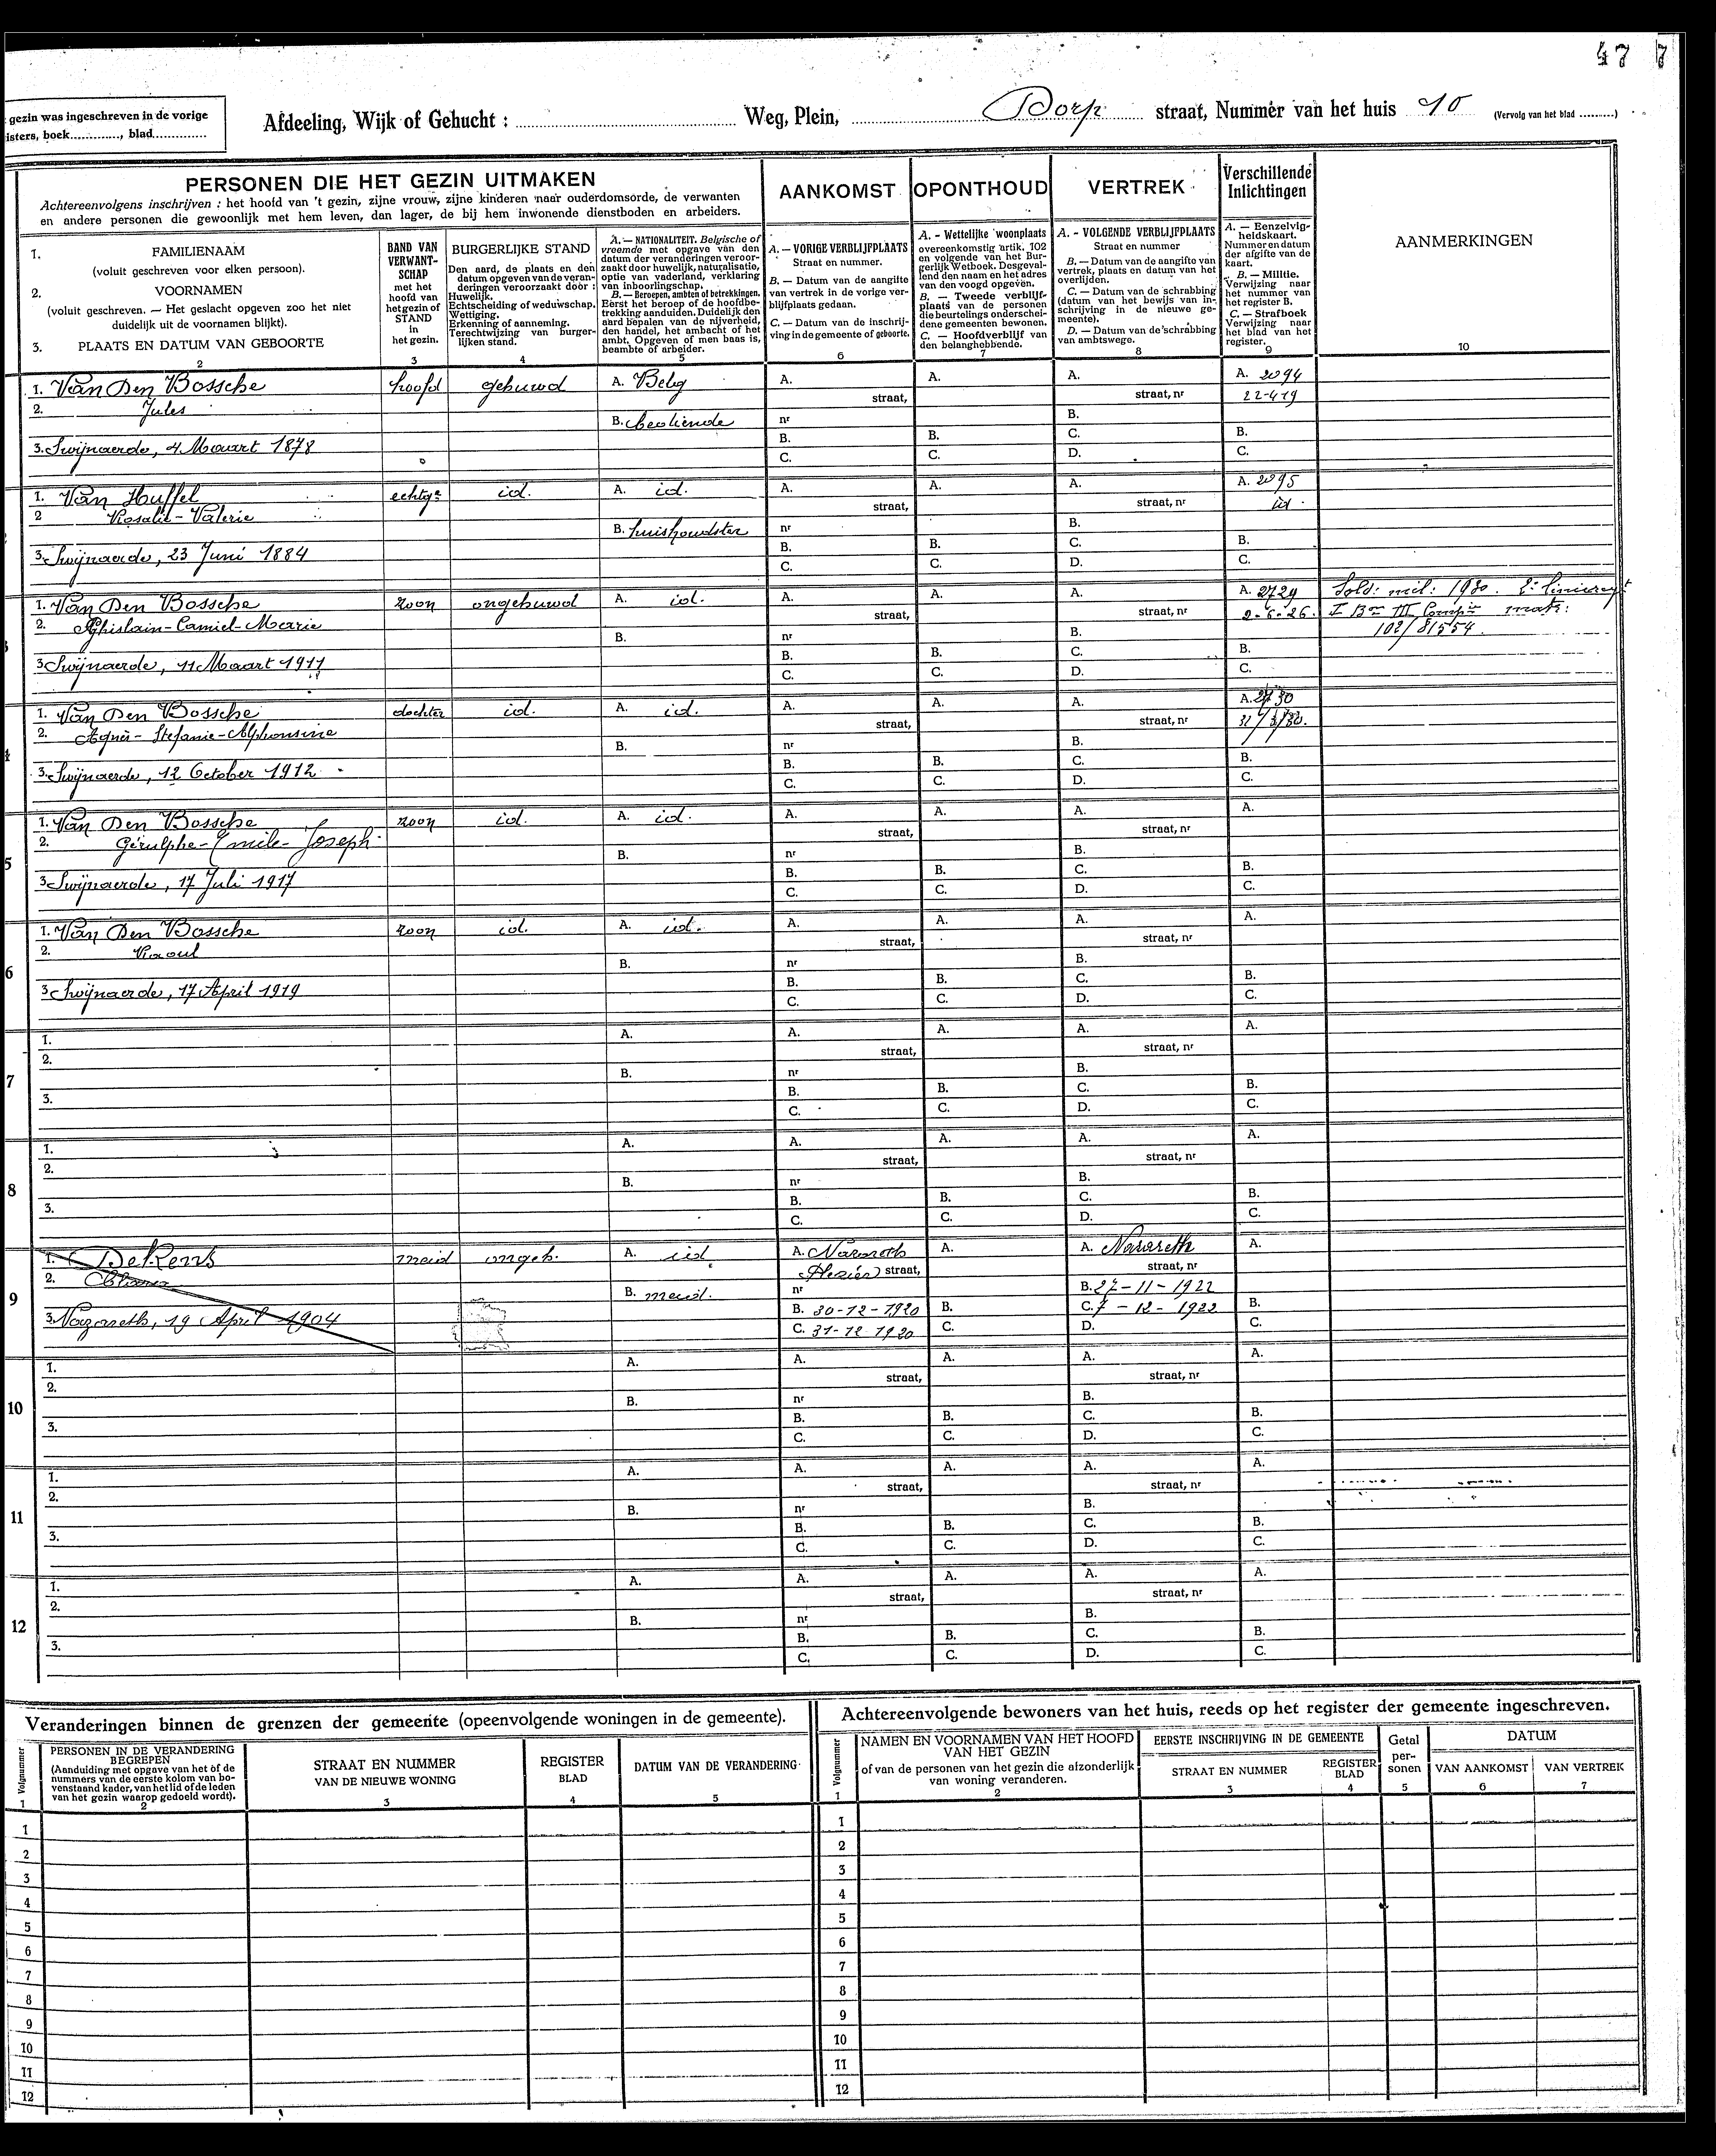 47 7
gezin was ingeschreven in de vorige
isters, boek............, blad..............
Afdeeling, Wijk of Gehucht : ........ Weg, Plein, ........ Dorp straat, Nummer van het huis 10 (Vervolg van het blad .........)
PERSONEN DIE HET GEZIN UITMAKEN
Achtereenvolgens inschrijven : het hoofd van 't gezin, zijne vrouw, zijne kinderen naar ouderdomsorde, de verwanten
en andere personen die gewoonlijk met hem leven, dan lager, de bij hem inwonende dienstboden en arbeiders.
AANKOMST
OPONTHOUD
VERTREK
Verschillende
Inlichtingen
AANMERKINGEN
1. FAMILIENAAM
(voluit geschreven voor elken persoon).
2. VOORNAMEN
(voluit geschreven. — Het geslacht opgeven zoo het niet
duidelijk uit de voornamen blijkt).
3. PLAATS EN DATUM VAN GEBOORTE
2
BAND VAN
VERWANT-
SCHAP
met het
hoofd van
het gezin of
STAND
in
het gezin.
3
BURGERLIJKE STAND
Den aard, de plaats en den
datum opgeven van de veran-
deringen veroorzaakt door :
Huwelijk.
Echtscheiding of weduwschap.
Wettiging.
Erkenning of aanneming.
Terechtwijzing van burger-
lijken stand.
4
A. — NATIONALITEIT. Belgische of
vreemde met opgave van den
datum der veranderingen veroor-
zaakt door huwelijk, naturalisatie,
optie van vaderland, verklaring
van inboorlingschap.
B. — Beroepen, ambten of betrekkingen.
Eerst het beroep of de hoofdbe-
trekking aanduiden. Duidelijk den
aard bepalen van de nijverheid,
den handel, het ambacht of het
ambt. Opgeven of men baas is,
beambte of arbeider.
5
A. — VORIGE VERBLIJFPLAATS
Straat en nummer.
B. — Datum van de aangifte
van vertrek in de vorige ver-
blijfplaats gedaan.
C. — Datum van de inschrij-
ving in de gemeente of geboorte.
6
A. - Wettelijke woonplaats
overeenkomstig artik. 102
en volgende van het Bur-
gerlijk Wetboek. Desgeval-
lend den naam en het adres
van den voogd opgeven.
B. — Tweede verblijf-
plaats van de personen
die beurtelings onderschei-
dene gemeenten bewonen.
C. — Hoofdverblijf van
den belanghebbende.
7
A. - VOLGENDE VERBLIJFPLAATS
Straat en nummer
B. — Datum van de aangifte van
vertrek, plaats en datum van het
overlijden.
C. — Datum van de schrabbing
(datum van het bewijs van in-
schrijving in de nieuwe ge-
meente).
D. — Datum van de schrabbing
van ambtswege.
8
A. — Eenzelvig-
heidskaart.
Nummer en datum
der afgifte van de
kaart.
B. — Militie.
Verwijzing naar
het nummer van
het register B.
C. — Strafboek
Verwijzing naar
het blad van het
register.
9
10
1. Van Den Bossche hoofd gehuwd A. Belg A. A. A. A. 2094
2. Jules straat, straat, nr 22-4-19
B. bediende nr B.
3. Swijnaerde, 4 Maart 1878 B. B. C. B.
C. C. D. C.
1. Van Huffel echtge id. A. id. A. A. A. A. 2095
2 Rosalie-Valerie straat, straat, nr id.
B. huishoudster nr B.
3. Swijnaerde, 23 Juni 1884 B. B. C. B.
C. C. D. C.
1. Van Den Bossche zoon ongehuwd A. id. A. A. A. A. 2729 Sold: mil: 1930.
2. Ghislain-Camiel-Marie straat, straat, nr 2-6-26. I Bon III Compie matr:
B. nr B. 102/81554
3 Swijnaerde, 11 Maart 1911 B. B. C. B.
C. C. D. C.
1. Van Den Bossche dochter id. A. id. A. A. A. A. 2730
2. Agnès-Stefanie-Alphonsine straat, straat, nr 31/3/30.
4 B. nr B.
3. Swijnaerde, 12 October 1912 B. B. C. B.
C. C. D. C.
1. Van Den Bossche zoon id. A. id. A. A. A. A.
2. Gérulphe-Emile-Joseph straat, straat, nr
5 B. nr B.
3 Swijnaerde, 17 Juli 1917 B. B. C. B.
C. C. D. C.
1. Van Den Bossche zoon id. A. id. A. A. A. A.
2. Raoul straat, straat, nr
6 B. nr B.
3 Swijnaerde, 17 April 1919 B. B. C. B.
C. C. D. C.
1. A. A. A. A. A.
2. straat, straat, nr
7 B. nr B.
3. B. B. C. B.
C. C. D. C.
1. A. A. A. A. A.
2. straat, straat, nr
8 B. nr B.
3. B. B. C. B.
C. C. D. C.
1. meid ongeh. A. id A. Nazareth A. A. Nazareth A.
2. straat, straat, nr
9 B. meid. nr B. 27-11-1922
3. Nazareth, 19 April 1904 B. 30-12-1920 B. C. 7-12-1922 B.
C. 31-12 1920 C. D. C.
1. A. A. A. A. A.
2. straat, straat, nr
10 B. nr B.
3. B. B. C. B.
C. C. D. C.
1. A. A. A. A. A.
2. straat, straat, nr
11 B. nr B.
3. B. B. C. B.
C. C. D. C.
1. A. A. A. A. A.
2. straat, straat, nr
12 B. nr B.
3. B. B. C. B.
C. C. D. C.
Veranderingen binnen de grenzen der gemeente (opeenvolgende woningen in de gemeente).
Volgnummer
1
PERSONEN IN DE VERANDERING
BEGREPEN
(Aanduiding met opgave van het of de
nummers van de eerste kolom van bo-
venstaand kader, van het lid of de leden
van het gezin waarop gedoeld wordt).
2
STRAAT EN NUMMER
VAN DE NIEUWE WONING
3
REGISTER
BLAD
4
DATUM VAN DE VERANDERING
5
1
2
3
4
5
6
7
8
9
10
11
12
Achtereenvolgende bewoners van het huis, reeds op het register der gemeente ingeschreven.
Volgnummer
1
NAMEN EN VOORNAMEN VAN HET HOOFD
VAN HET GEZIN
of van de personen van het gezin die afzonderlijk
van woning veranderen.
2
EERSTE INSCHRIJVING IN DE GEMEENTE
STRAAT EN NUMMER
3
REGISTER
BLAD
4
Getal
per-
sonen
5
DATUM
VAN AANKOMST
6
VAN VERTREK
7
1
2
3
4
5
6
7
8
9
10
11
12